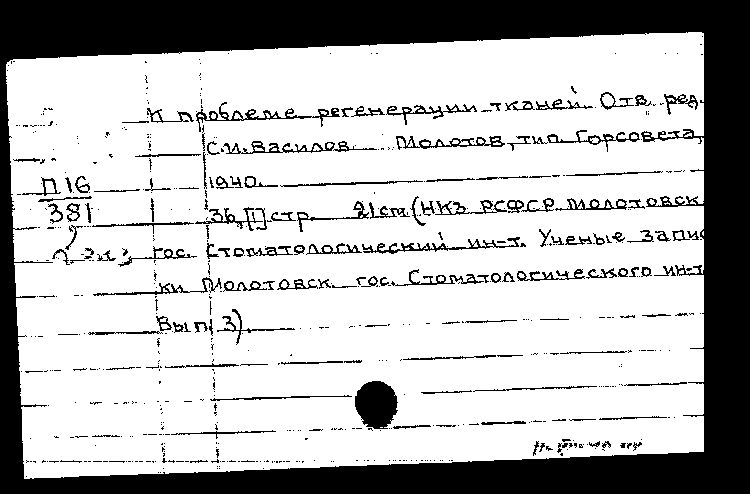 К проблеме регенерации тканей. Отв. ред.
С.И. Василов. Молотов, тип. Горсовета,
1940.
П 16
381
36, [1] стр. 21 см (НКЗ РСФСР. Молотовск
2 экз
гос. Стоматологический ин-т. Ученые запис
ки Молотовск. гос. Стоматологического ин-т
Вып 3).